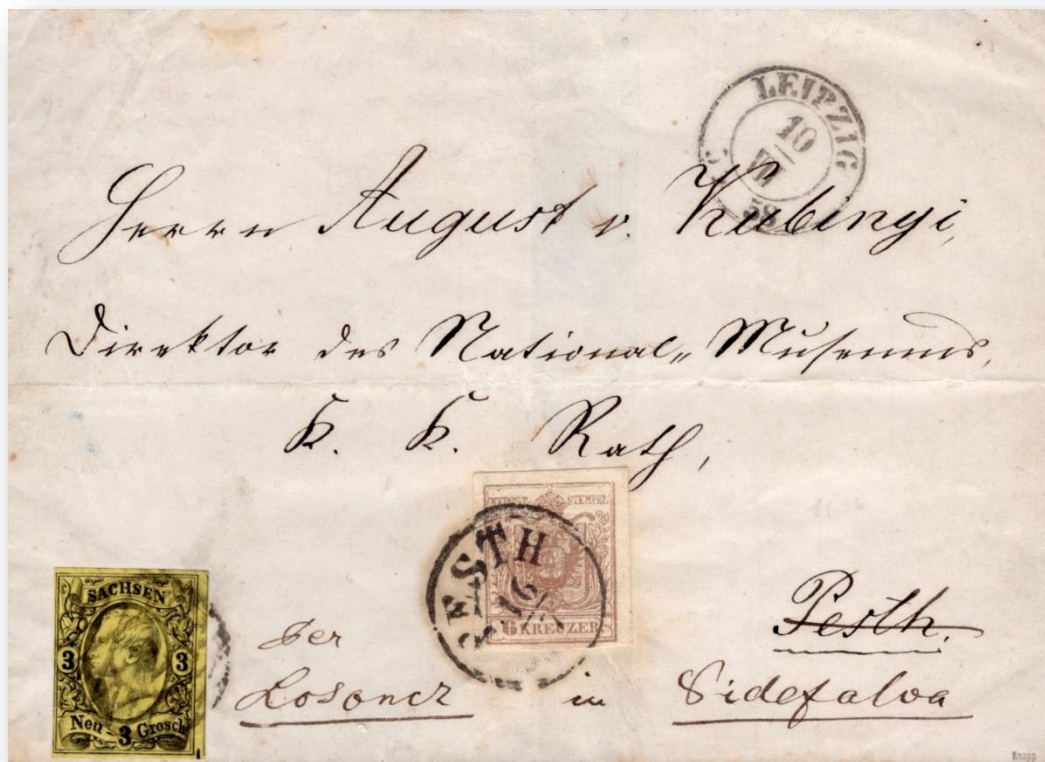 LEIPZIG
10
VII
58
Herrn August v. Kubinyi,
Direktor des National-Museums,
K. K. Rath,
KKPOST-STEMPEL
6 KREUZER
PESTH
16/7
SACHSEN
3 3
Neu - 3 Grosch
Pesth.
per
Losoncz in Videfalva
Knapp